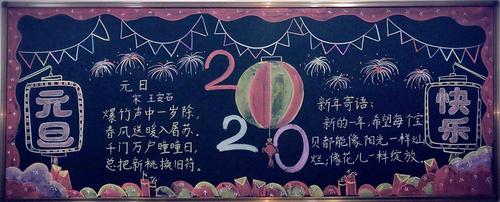 元旦
元日
宋 王安石
爆竹声中一岁除,
春风送暖入屠苏.
千门万户曈曈日,
总把新桃换旧符.
2020
新年寄语:
新的一年,希望每个宝
贝都能像阳光一样灿
烂;像花儿一样绽放
快乐